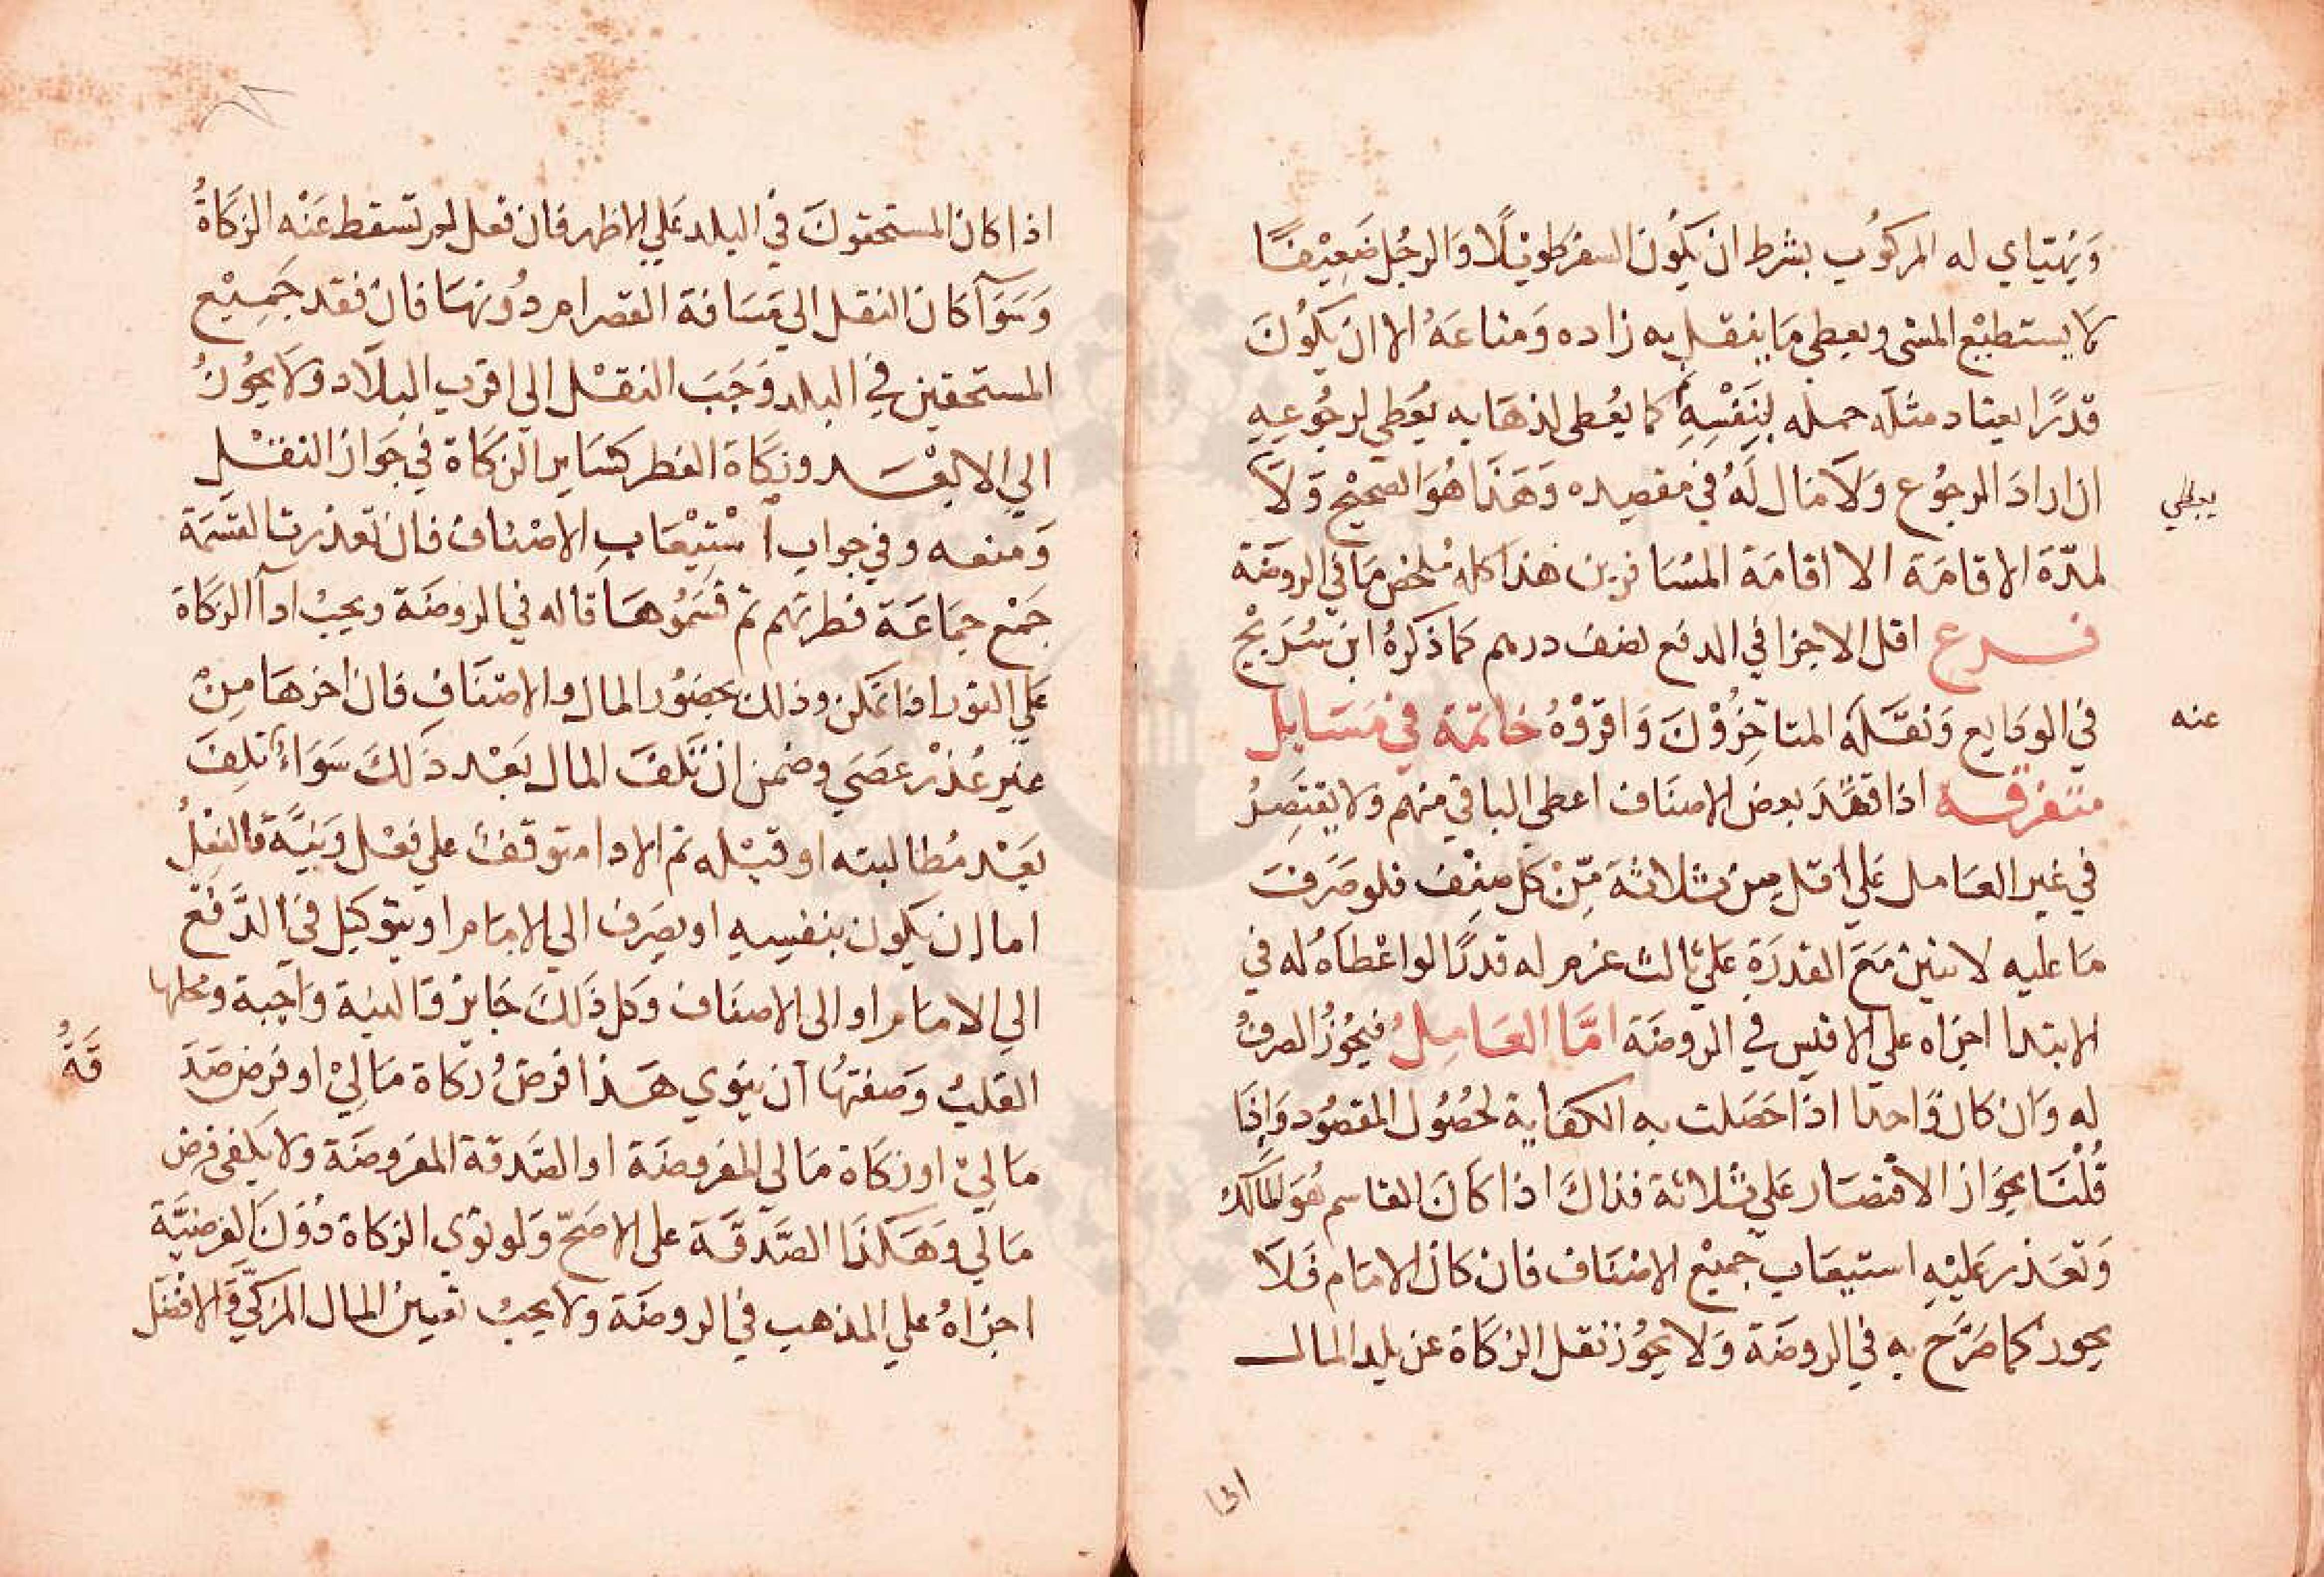 وَيُهَيّا ي له المركوُب بشرط ان يكوُن السفر طويْلًا وَالرجُل ضَعِيْفًا
لا يستطيْع المشي ويعطي مَا ينقل به زاده وَمتاعَهُ الا ان يَكوُنَ
قدرًا يعتاد مثله حمله بِنَفْسِهِ كما يعُطى لذهَابه يُعَطي لرجُوعِهِ
ان ارادَ الرجوُع وَلَا مَال لَهُ في مقصده وَهَذَا هُوَ الصحيْح وَلَا
يعطي
لمدّةَ الاقامَة الا اقامَة المسُافرين هذا كله مُلخص مَا في الروضَة
فرع اقل الاجزا في الدفع نصف درهم كمَا ذكرهُ ابن سُرَيْج
في الودَايع وَنقَلَهُ المتاخِّرُوْنَ وَاقرّوْهُ خاتمّة في مَسَايل
عنه
متفرقة اذا فقدَ بعض الاصنَاف اعطي الباقي منهم ولا يقتَصِرُ
في غير العَامل عَلي اقل مِن ثلاثَة مِّنْ كل صِنْف فلو صَرَفَ
مَا عليه لاثنين مَعَ القدرَةِ عَلي ثالث غرم له قدرًا لو اعْطاَهُ له في
الابتدا اجزاه علي الاقيس في الروضَة امَّا العَامِلُ فيَجُوُزُ الصرفُ
له وَان كان وَاحدا اذَا حَصَلت به الكفاية لحصُول المقصُود وَاِذَا
قُلْنَا بجوَاز الاقتصَار عَلي ثلاثة فذاكَ اذا كَانَ القاسم هُوَ المالكُ
وَتعَذر عَليْهِ استيعَاب جميْع الاصْنَاف فان كان الامَام فَلَا
يجوز كما صَرّح به في الروضَة وَلا يجوُز نقل الزكَاة عن بلد المال
اذا
اذا كان المستحقونَ في البلد عَلي الاظهر فان فعل لم تسقط عَنْه الزكَاةُ
وَسَوَآ كان النقل الي مَسَافة القصر ام دُونهَا فان فقد جَمِيْع
المستحقين في البلد وَجَبَ النقل الي اقرب البلَاد وَلَا يجُوُزُ
الي الابْعَد وزكَاة الفطر كسَاير الزكَاة في جَوَاز النقْل
وَمنعه وفي جواب اسْتِيْعَابِ الاصْناف فان تعذرت القسَمَة
جَمَع جمَاعَة فطرتهم ثم قسَمُوْهَا قاله في الروضَة ويجبُ ادآ الزكَاة
عَلي الفور اذا تمكن وذلك بحضُور المال والاصْنَافِ فان اخرهَا مِنْ
غير عُذْر عَصَي وضمن ان تَلفَ المال بَعْد ذَلكَ سَوَاءُ تلِفَ
بَعْد مُطالبته او قبْله ثم الادا متوقفٌ علي فعْل وَنِيَّة فالفِعْلُ
اما ان يكون بنفسِهِ او يصَرف الي الامَام او يتوكيل في الدَّفْع
الي الامَام او الى الاصنَاف وَكل ذَلكَ جَايز وَالنية وَاجبة ومحلها
القلبُ وَصفتهُا ان ينوي هَذا فرضُ زكاة مَاليْ او فرض صَدَ
قَةُ
مَاليْ او زكَاة مَالي المفروضَة او الصَّدقة المفرَوضَة ولا يكفي فرض
مَالي وَهَكذَا الصَّدقَة على الاصَحّ وَلو نوَي الزكاة دُوَن الفرضيَّة
اجزاهُ علي المذهب في الروضَة ولا يجبُ تعيين المال المزكيّ وَالافضَل